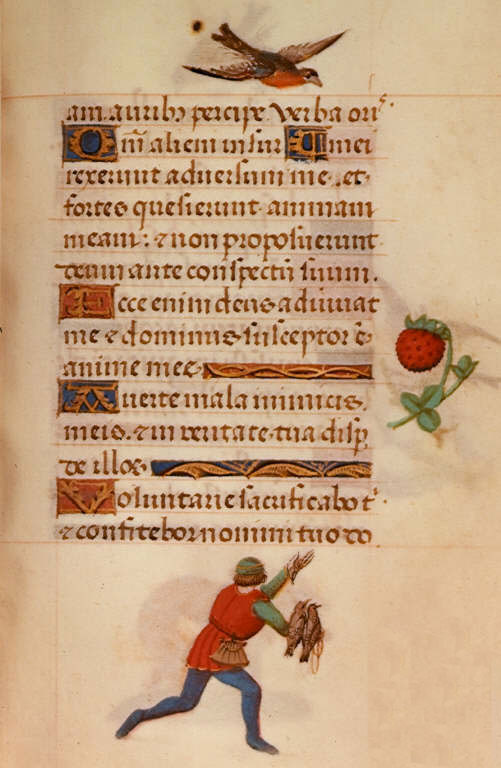 am auribꝫ percipe verba ori⁹.
Qm̄ alieni insur mei
rexerunt adversum me. et
fortes quesierunt animam
meam: ⁊ non proposuerunt
deum ante conspectū suum.
Ecce enim deus adiuvat
me ⁊ dominus susceptor ē
anime mee.
Averte mala inimicis
meis. ⁊ in veritate tua disp̄
de illos.
Voluntarie sacrificabo t'
⁊ confitebor nomini tuo do